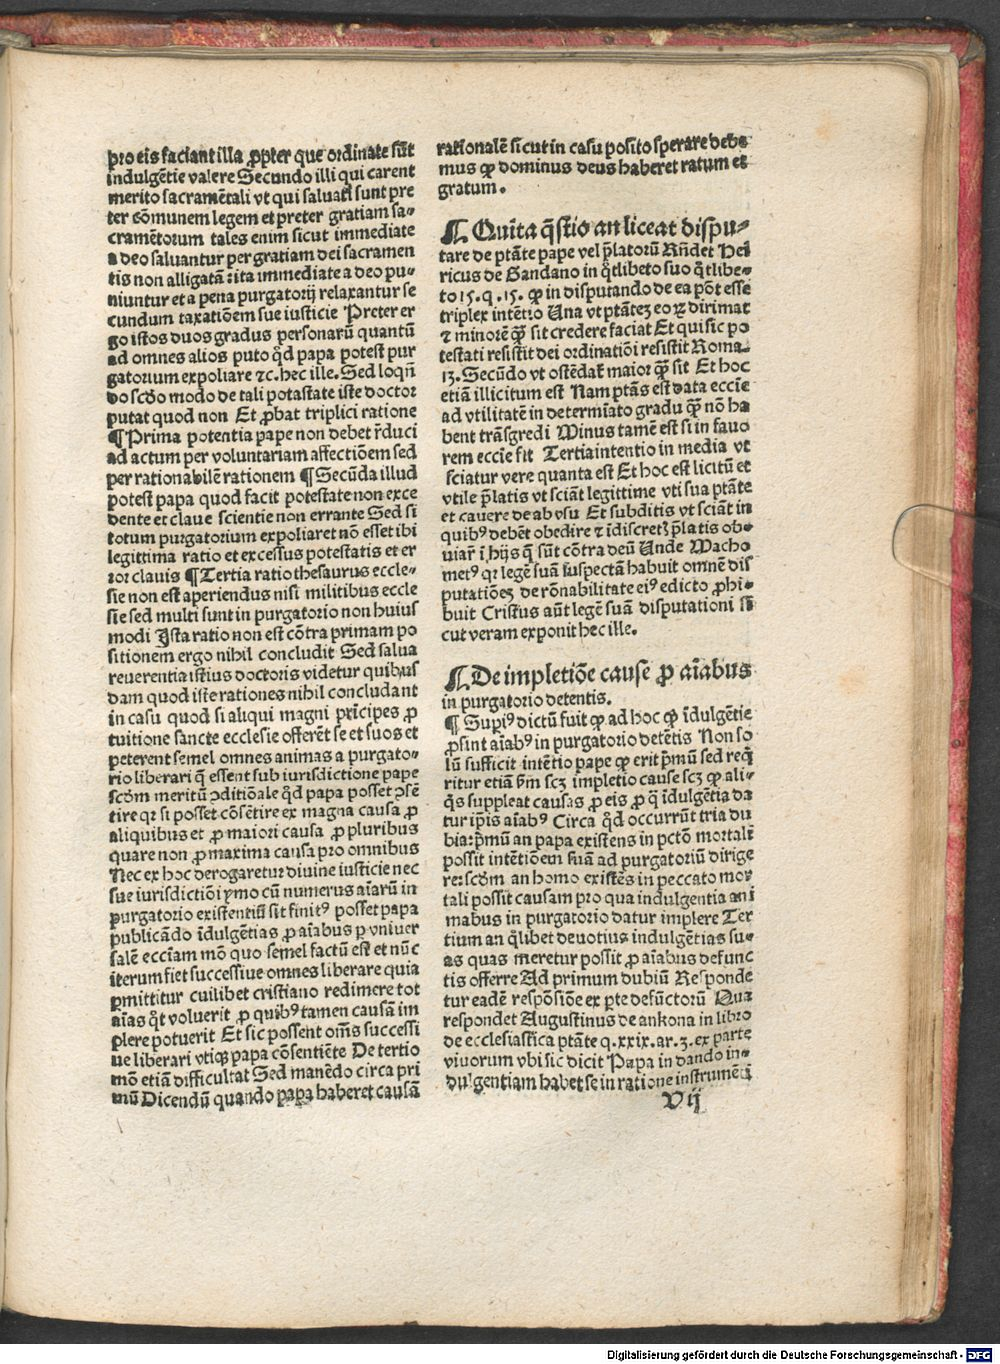 pro eis faciant illa ꝓpter que ordinate sūt
indulgētie valere Secundo illi qui carent
merito sacramētali vt qui saluati sunt pre
ter cōmunem legem et preter gratiam sa-
cramētorum tales enim sicut immediate
a deo saluantur per gratiam dei sacramen
tis non alligatā: ita immediate a deo pu-
niuntur et a pena purgatorij relaxantur se
cundum taxatiōem sue iusticie Preter er
go istos duos gradus personarū quantū
ad omnes alios puto qd̄ papa potest pur
gatorium expoliare ⁊c. hec ille. Sed loqn̄
do scd̄o modo de tali potastate iste doctor
putat quod non Et ꝓbat triplici ratione
¶ Prima potentia pape non debet r̄duci
ad actum per voluntariam affectiōem sed
per rationabilē rationem ¶ Secūda illud
potest papa quod facit potestate non exce
dente et claue scientie non errante Sed si
totum purgatorium expoliaret nō esset ibi
legittima ratio et excessus potestatis et er
ror clauis ¶ Tertia ratio thesaurus eccle-
sie non est aperiendus nisi militibus eccle
sie sed multi sunt in purgatorio non huius
modi Ista ratio non est cōtra primam po
sitionem ergo nihil concludit Sed salua
reuerentia istius doctoris videtur quibus
dam quod iste rationes nihil concludant
in casu quod si aliqui magni prīcipes ꝓ
tuitione sancte ecclesie offerēt se et suos et
peterent semel omnes animas a purgato-
rio liberari q̄ essent sub iurisdictione pape
scd̄m meritū ↄditiōale qd̄ papa posset ↄsē
tire qꝛ si posset cōsētire ex magna causa ꝓ
aliquibus et ꝓ maiori causa ꝓ pluribus
quare non ꝓ maxima causa pro omnibus
Nec ex hoc derogaretur diuine iusticie nec
sue iurisdictiōi ymo cū numerus aīarū in
purgatorio existentiū sit finitꝰ posset papa
publicādo īdulgētias ꝓ aīabus ꝑ vniuer
salē eccīam mō quo semel factū est et nūc
iterum fiet successiue omnes liberare quia
ꝑmittitur cuilibet cristiano redimere tot
aīas qt̄ voluerit ꝓ quibꝰ tamen causā im
plere potuerit Et sic possent om̄s successi
ue liberari vtiqꝫ papa cōsentiēte De tertio
mō etiā difficultat Sed manēdo circa pri
mū Dicendū quando papa haberet causā
rationalē sicut in casu posito sperare debe
mus ꝙ dominus deus haberet ratum et
gratum.
¶ Quīta q̄stio an liceat dispu-
tare de ptāte pape vel p̄latorū Rn̄det Hēi
ricus de Gandano in q̄tlibeto suo q̄tlibe-
to 15. q. 15. ꝙ in disputando de ea pōt esse
triplex intētio Una vt ptātez eoꝝ dirimat
⁊ minorē ꝙ̄ sit credere faciat Et qui sic po
testati resistit dei ordinatiōi resistit Roma.
13. Secūdo vt ostēdat̄ maior ꝙ̄ sit Et hoc
etiā illicitum est Nam ptās est data eccīe
ad vtilitatē in determīato gradu ꝙ̄ nō ha
bent trāsgredi Minus tamē est si in fauo
rem eccīe fit Tertia intentio in media vt
sciatur vere quanta est Et hoc est licitū et
vtile p̄latis vt sciāt legittime vti sua ptāte
et cauere de ab vsu Et subditis vt sciāt in
quibꝰ debēt obedire ⁊ īdiscretꝭ p̄latis ob-
uiar̄ ī hijs q̄ sūt cōtra deū Unde Macho
metꝰ qꝛ legē suā suspectā habuit omnē dis
putatiōeꝫ de rōnabilitate eiꝰ edicto ꝓhi-
buit Cristus aūt legē suā disputationi si
cut veram exponit hec ille.
¶ De impletiōe cause ꝓ aīabus
in purgatorio detentis.
¶ Supiꝰ dictū fuit ꝙ ad hoc ꝙ īdulgētie
ꝓsint aīabꝰ in purgatorio detētis Non so
lū sufficit intētio pape ꝙ erit p̄mū sed req̄
ritur etiā ẜm scꝫ impletio cause scꝫ ꝙ ali-
q̄s suppleat causas ꝓ eis ꝓ q̄ īdulgētia da
tur ip̄is aīabꝰ Circa qd̄ occurrūt tria du
bia: p̄mū an papa existens in pctō mortali
possit intētiōem suā ad purgatoriū dirige
re: scd̄m an homo existēs in peccato mor
tali possit causam pro qua indulgentia ani
mabus in purgatorio datur implere Ter
tium an q̄libet deuotius indulgētias su-
as quas meretur possit ꝓ aīabus defunc
tis offerre Ad primum dubiū Responde
tur eadē respōsiōe ex ꝑte defūctorū Qua
respondet Augustinus de ankona in libro
de ecclesiastica ptāte q. xxix. ar. 3. ex parte
viuorum vbi sic dicit Papa in dando in-
dulgentiam habet se in ratione instrumēti
V ij
Digitalisierung gefördert durch die Deutsche Forschungsgemeinschaft - DFG